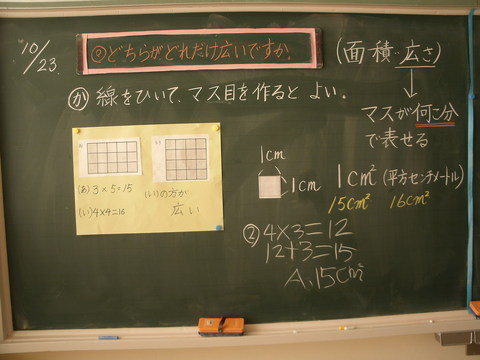 10/23.
⊙どちらがどれだけ広いですか。
(面積‥広さ)
マスが何こ分
で表せる
か 線をひいて、マス目を作るとよい。
(あ) 3×5=15
(い) 4×4=16
(い)の方が
広い
1cm
1cm
1cm² (平方センチメートル)
15cm² 16cm²
② 4×3=12
12+3=15
A.15cm²